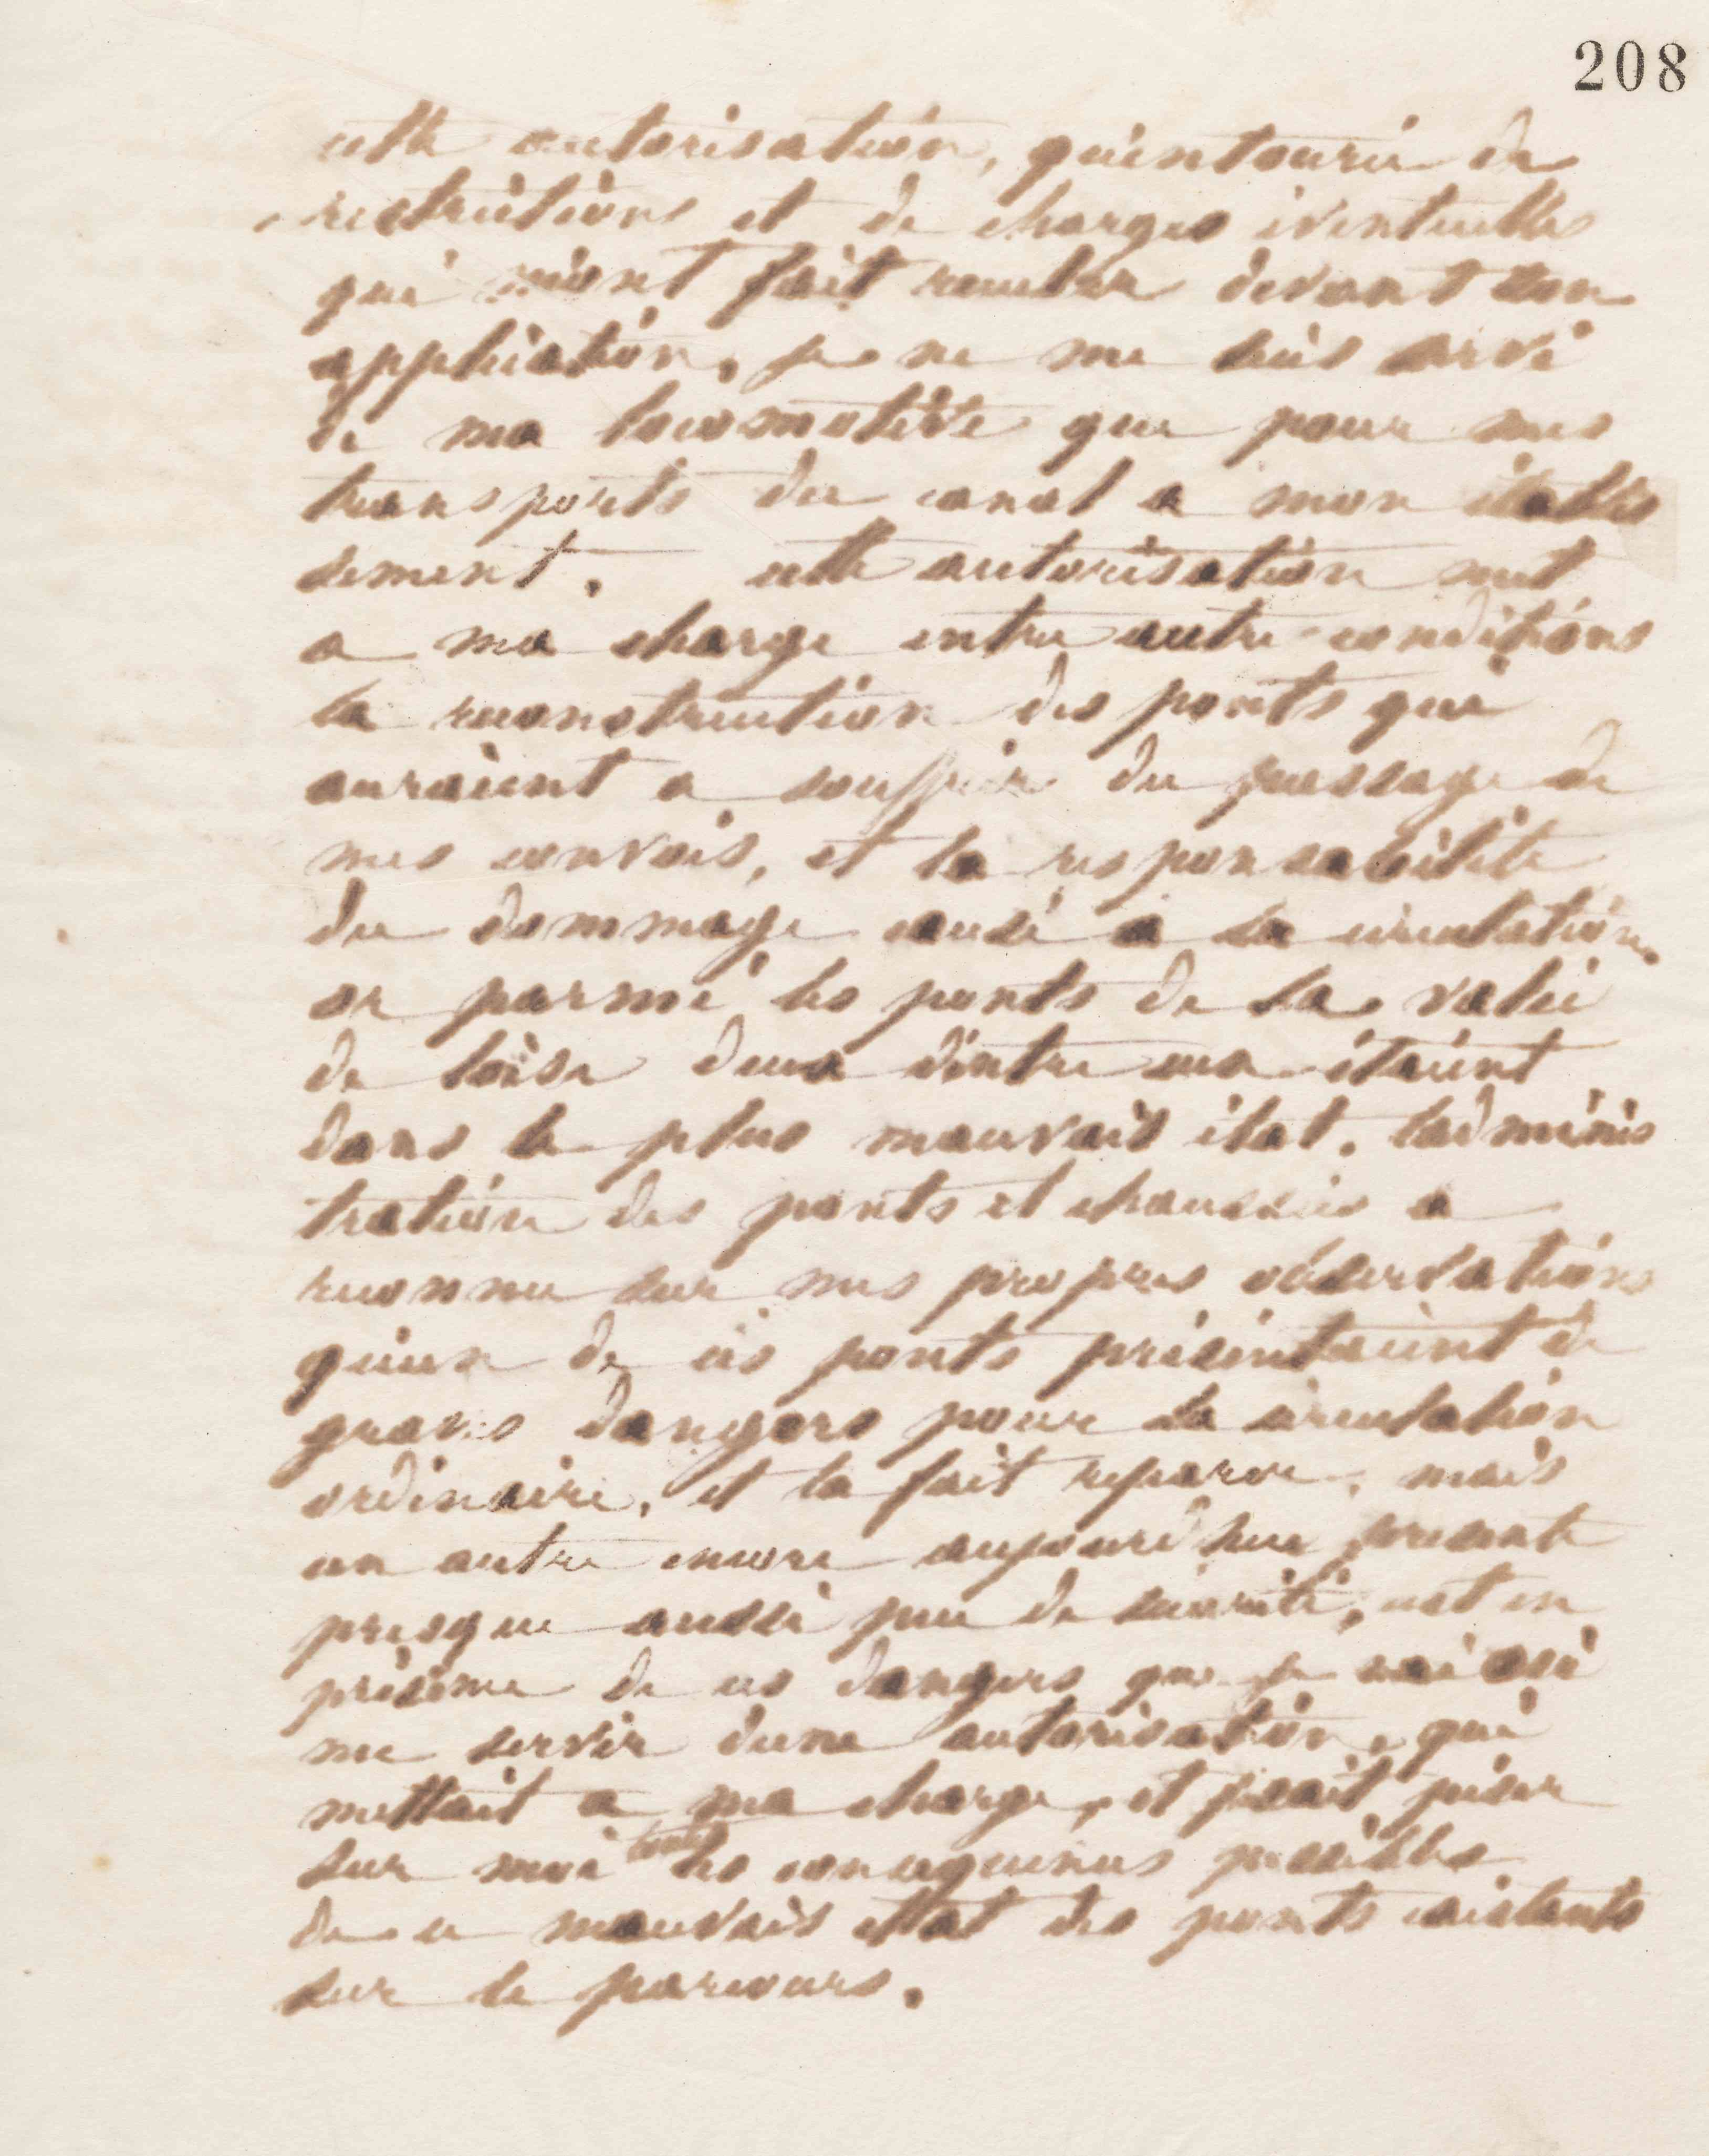 208
cette autorisation, qu'entourée de
restrictions et de charges éventuelles
qui m'ont fait reculer devant son
application, je ne me suis servi
de ma locomotive que pour mes
transports du canal a mon établis
sement. cette autorisation met
a ma charge entre autre conditions
la reconstruction des ponts qui
auraient a souffrir du passage de
mes convois, et la responsabilité
du dommage causé a la circulation.
or parmi les ponts de la valée
de loise deux d'entre eux étaient
dans le plus mauvais état. ladminis
tration des ponts et chaussées a
reconnu sur mes propres observations
qu'un de ces ponts présentaient de
graves dangers pour la circulation
ordinaire, et la fait reparer, mais
un autre encore aujourdhui présente
presque aussi peu de sécurité, cest en
présence de ces dangers que je nai osé
me servir dune autorisation, qui
mettait a ma charge, et fesait peser
sur moi toutes les consequences possibles
de ce mauvais ettat des ponts existants
sur le parcours.